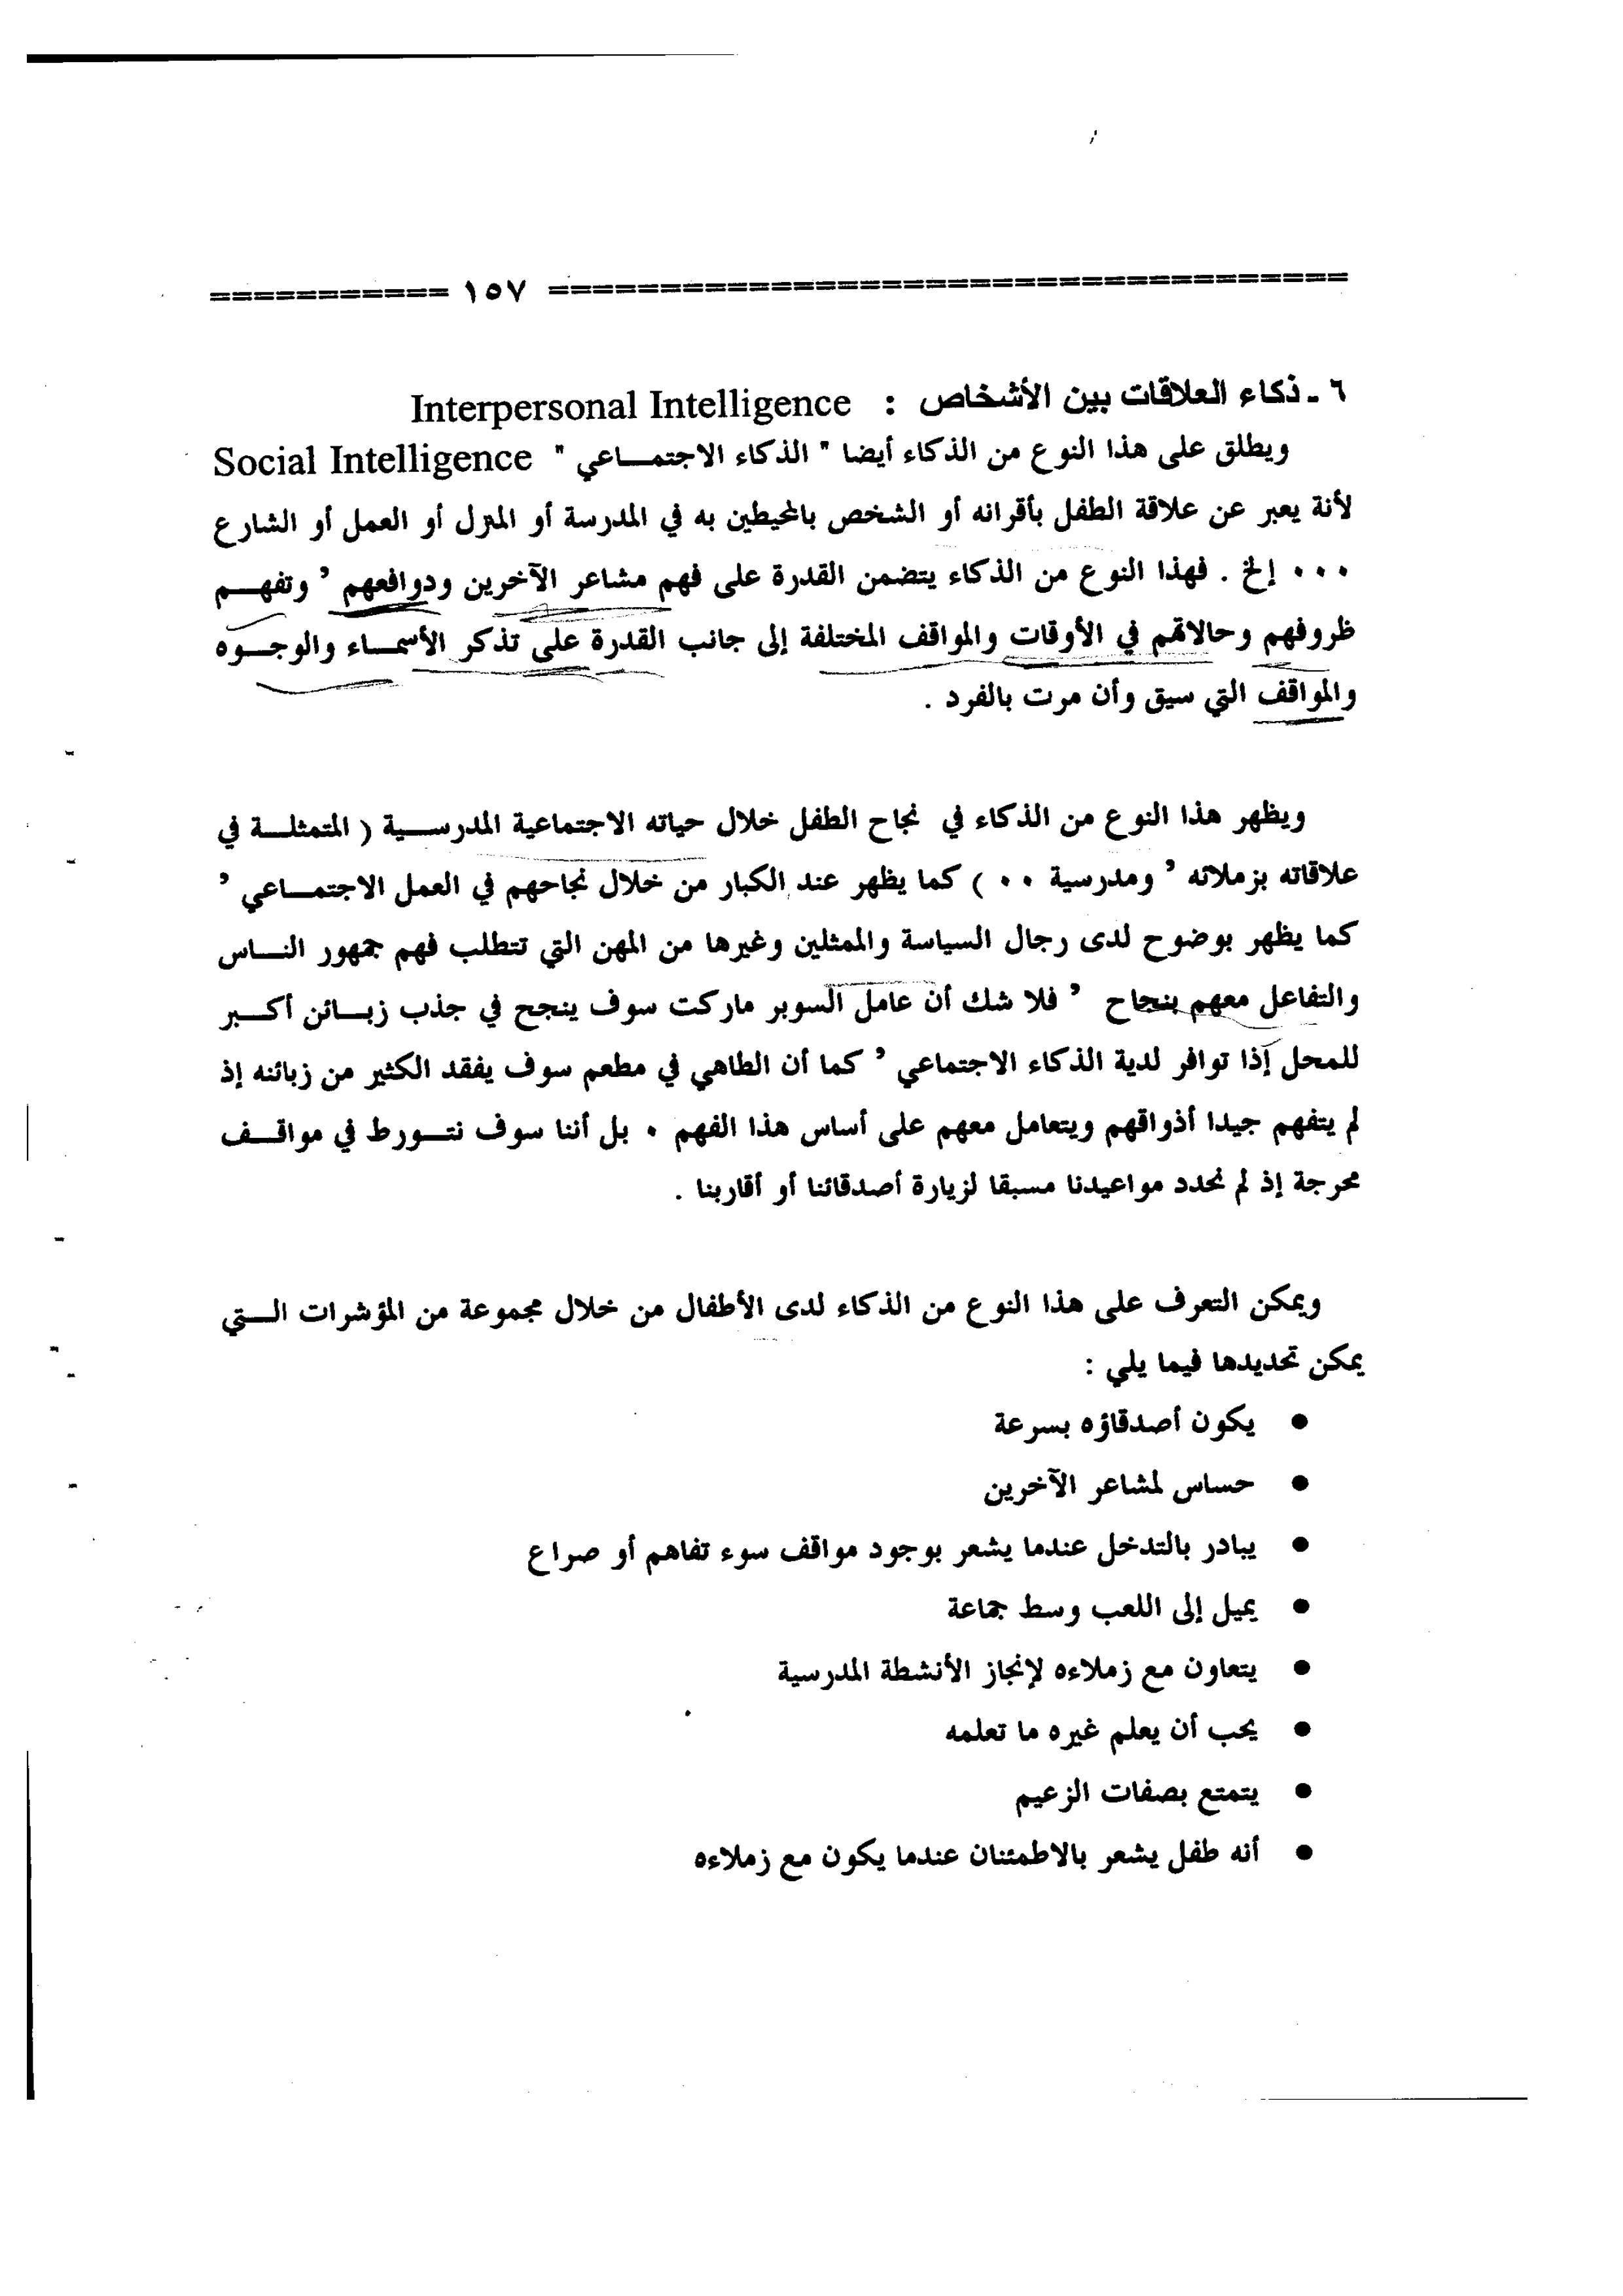 =================================== ١٥٧ ===========
٦ ـ ذكاء العلاقات بين الأشخاص : Interpersonal Intelligence
ويطلق على هذا النوع من الذكاء أيضا " الذكاء الاجتمـــاعي " Social Intelligence
لأنة يعبر عن علاقة الطفل بأقرانه أو الشخص بالمحيطين به في المدرسة أو المنزل أو العمل أو الشارع
٠٠٠ إلخ . فهذا النوع من الذكاء يتضمن القدرة على فهم مشاعر الآخرين ودوافعهم ’ وتفهـــم
ظروفهم وحالاتهم في الأوقات والمواقف المختلفة إلى جانب القدرة على تذكر الأسمـــاء والوجـــوه
والمواقف التي سيق وأن مرت بالفرد .
ويظهر هذا النوع من الذكاء في نجاح الطفل خلال حياته الاجتماعية المدرســـية ( المتمثلـــة في
علاقاته بزملائه ’ ومدرسية ٠٠ ) كما يظهر عند الكبار من خلال نجاحهم في العمل الاجتمـــاعي ’
كما يظهر بوضوح لدى رجال السياسة والممثلين وغيرها من المهن التي تتطلب فهم جمهور النـــاس
والتفاعل معهم بنجاح ’ فلا شك أن عامل السوبر ماركت سوف ينجح في جذب زبـــائن أكـــبر
للمحل إذا توافر لدية الذكاء الاجتماعي ’ كما أن الطاهي في مطعم سوف يفقد الكثير من زبائنه إذ
لم يتفهم جيدا أذواقهم ويتعامل معهم على أساس هذا الفهم ٠ بل أننا سوف نتـــورط في مواقـــف
محرجة إذ لم نحدد مواعيدنا مسبقا لزيارة أصدقائنا أو أقاربنا .
ويمكن التعرف على هذا النوع من الذكاء لدى الأطفال من خلال مجموعة من المؤشرات الـــتي
يمكن تحديدها فيما يلي :
● يكون أصدقاؤه بسرعة
● حساس لمشاعر الآخرين
● يبادر بالتدخل عندما يشعر بوجود مواقف سوء تفاهم أو صراع
● يميل إلى اللعب وسط جماعة
● يتعاون مع زملاءه لإنجاز الأنشطة المدرسية
● يحب أن يعلم غيره ما تعلمه
● يتمتع بصفات الزعيم
● أنه طفل يشعر بالاطمئنان عندما يكون مع زملاءه